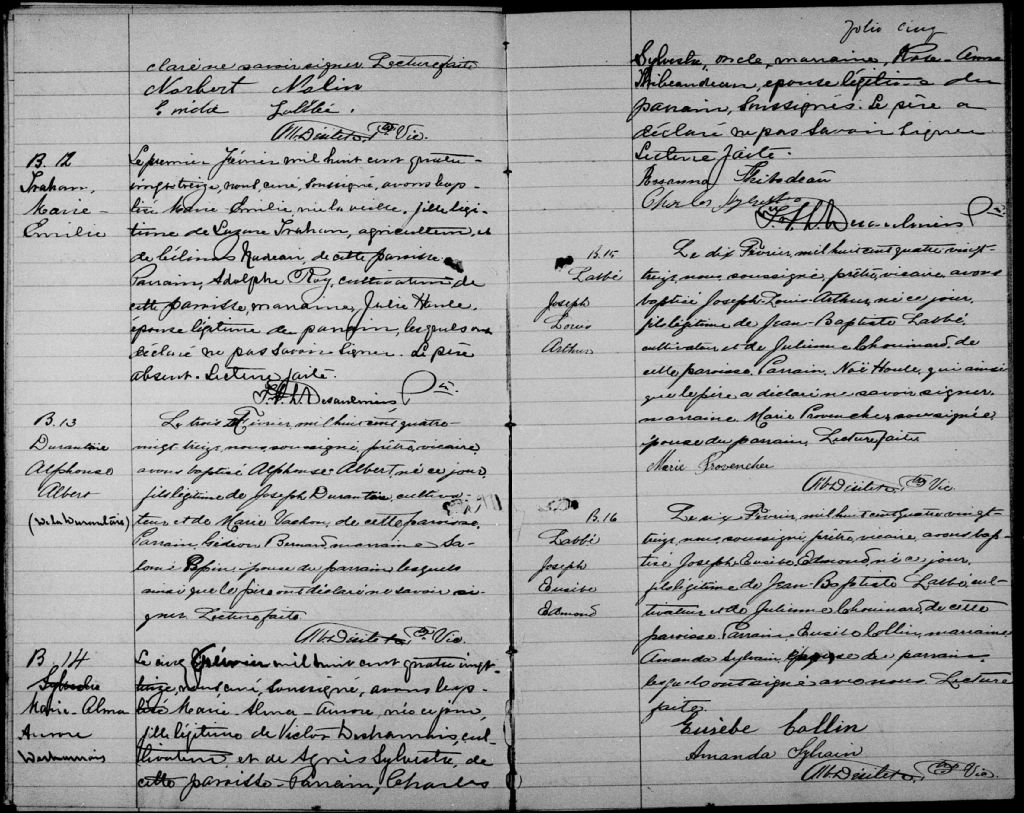 claré ne savoir signer Lecture faite
Norbert Nolin
Emélie Labbé.
Alb. Désilets, Ptre Vic.
B. 12
Traham,
Marie-
Emilie
Le premier Février mil huit cent quatre-
vingt treize, nous, curé, soussigné, avons bap-
tisé Marie Emilie, née la veille, fille légi-
time de Lazare Traham, agriculteur, et
de Célonas Nadeau, de cette paroisse.
Parrain, Adolphe Roy, cultivateur, de
cette paroisse, marraine, Julie Houle,
épouse légitime de parrain, lesquels ont
déclaré ne pas savoir signer. Le père
absent. Lecture faite.
F.S.L. Desaulniers, Ptre
B. 13
Durantaie
Alphonse
Albert
Le trois Février, mil huit cent quatre-
vingt treize, nous, soussigné, prêtre, vicaire,
avons baptisé Alphonse Albert, né ce jour,
fils légitime de Joseph Durantaie, cultiva-
teur et de Marie Vachon, de cette paroisse.
Parrain, Gédéon Bernard, marraine Sa-
lomé Pépin épouse du parrain lesquels
ainsi que le père ont déclaré ne savoir si-
gner. Lecture faite
Alb. Désilets Ptre Vic.
B 14
Sylvestre
Marie-Alma
Aurore
Desharnais
Le cinq Février mil huit cent quatre vingt
treize, nous, curé, soussigné, avons bap-
tisé Marie-Alma-Aurore, née ce jour,
fille légitime de Victor Desharnais, cul-
tivateur, et de Agnès Sylvestre, de
cette paroisse. Parrain, Charles
folio cinq
Sylvestre, oncle, marraine, Rose-Anna
Thibeaudeau, épouse légitime du
parrain, soussignés. Le père a
déclaré ne pas savoir signer
Lecture faite.
Rosanna Thibodeau
Charles Sylvestre
F.S.L. Desaulniers Ptre
B. 15
Labbé
Joseph
Louis
Arthur
Le dix Février, mil huit cent quatre vingt
treize, nous, soussigné, prêtre, vicaire, avons
baptisé Joseph-Louis-Arthur, né ce jour,
fils légitime de Jean-Baptiste Labbé,
cultivateur et de Julienne Chouinard, de
cette paroisse. Parrain, Noé Houle, qui ainsi
que le père a déclaré ne savoir signer,
marraine Marie Provencher, soussignée,
épouse du parrain, Lecture faite
Marie Provencher
Alb. Désilets, Ptre Vic
B. 16
Labbé
Joseph
Eusèbe
Edmond
Le dix Février, mil huit cent quatre vingt
treize, nous, soussigné, prêtre, vicaire, avons bap-
tisé Joseph-Eusèbe Edmond, né ce jour,
fils légitime de Jean-Baptiste Labbé, cul-
tivateur et de Julienne Chouinard, de cette
paroisse. Parrain Eusèbe Collin, marraine
Amanda Sylvain, épouse du parrain,
lesquels ont signé avec nous. Lecture
faite.
Eusèbe Collin
Amanda Sylvain
Alb. Désilets, Ptre Vic.